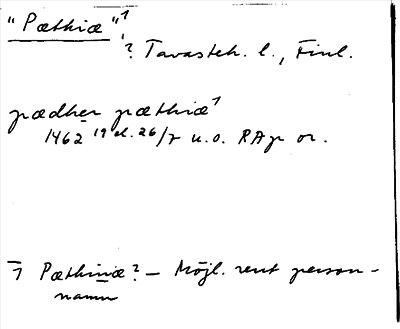 "Pæthiæ"⁷
? Tavasteh. l., Finl.
pædher pæthiæ⁷
1462 19 el. 26/7 u.o. RAp or.
7 Pæthinæ? – Möjl. rent person-
namn